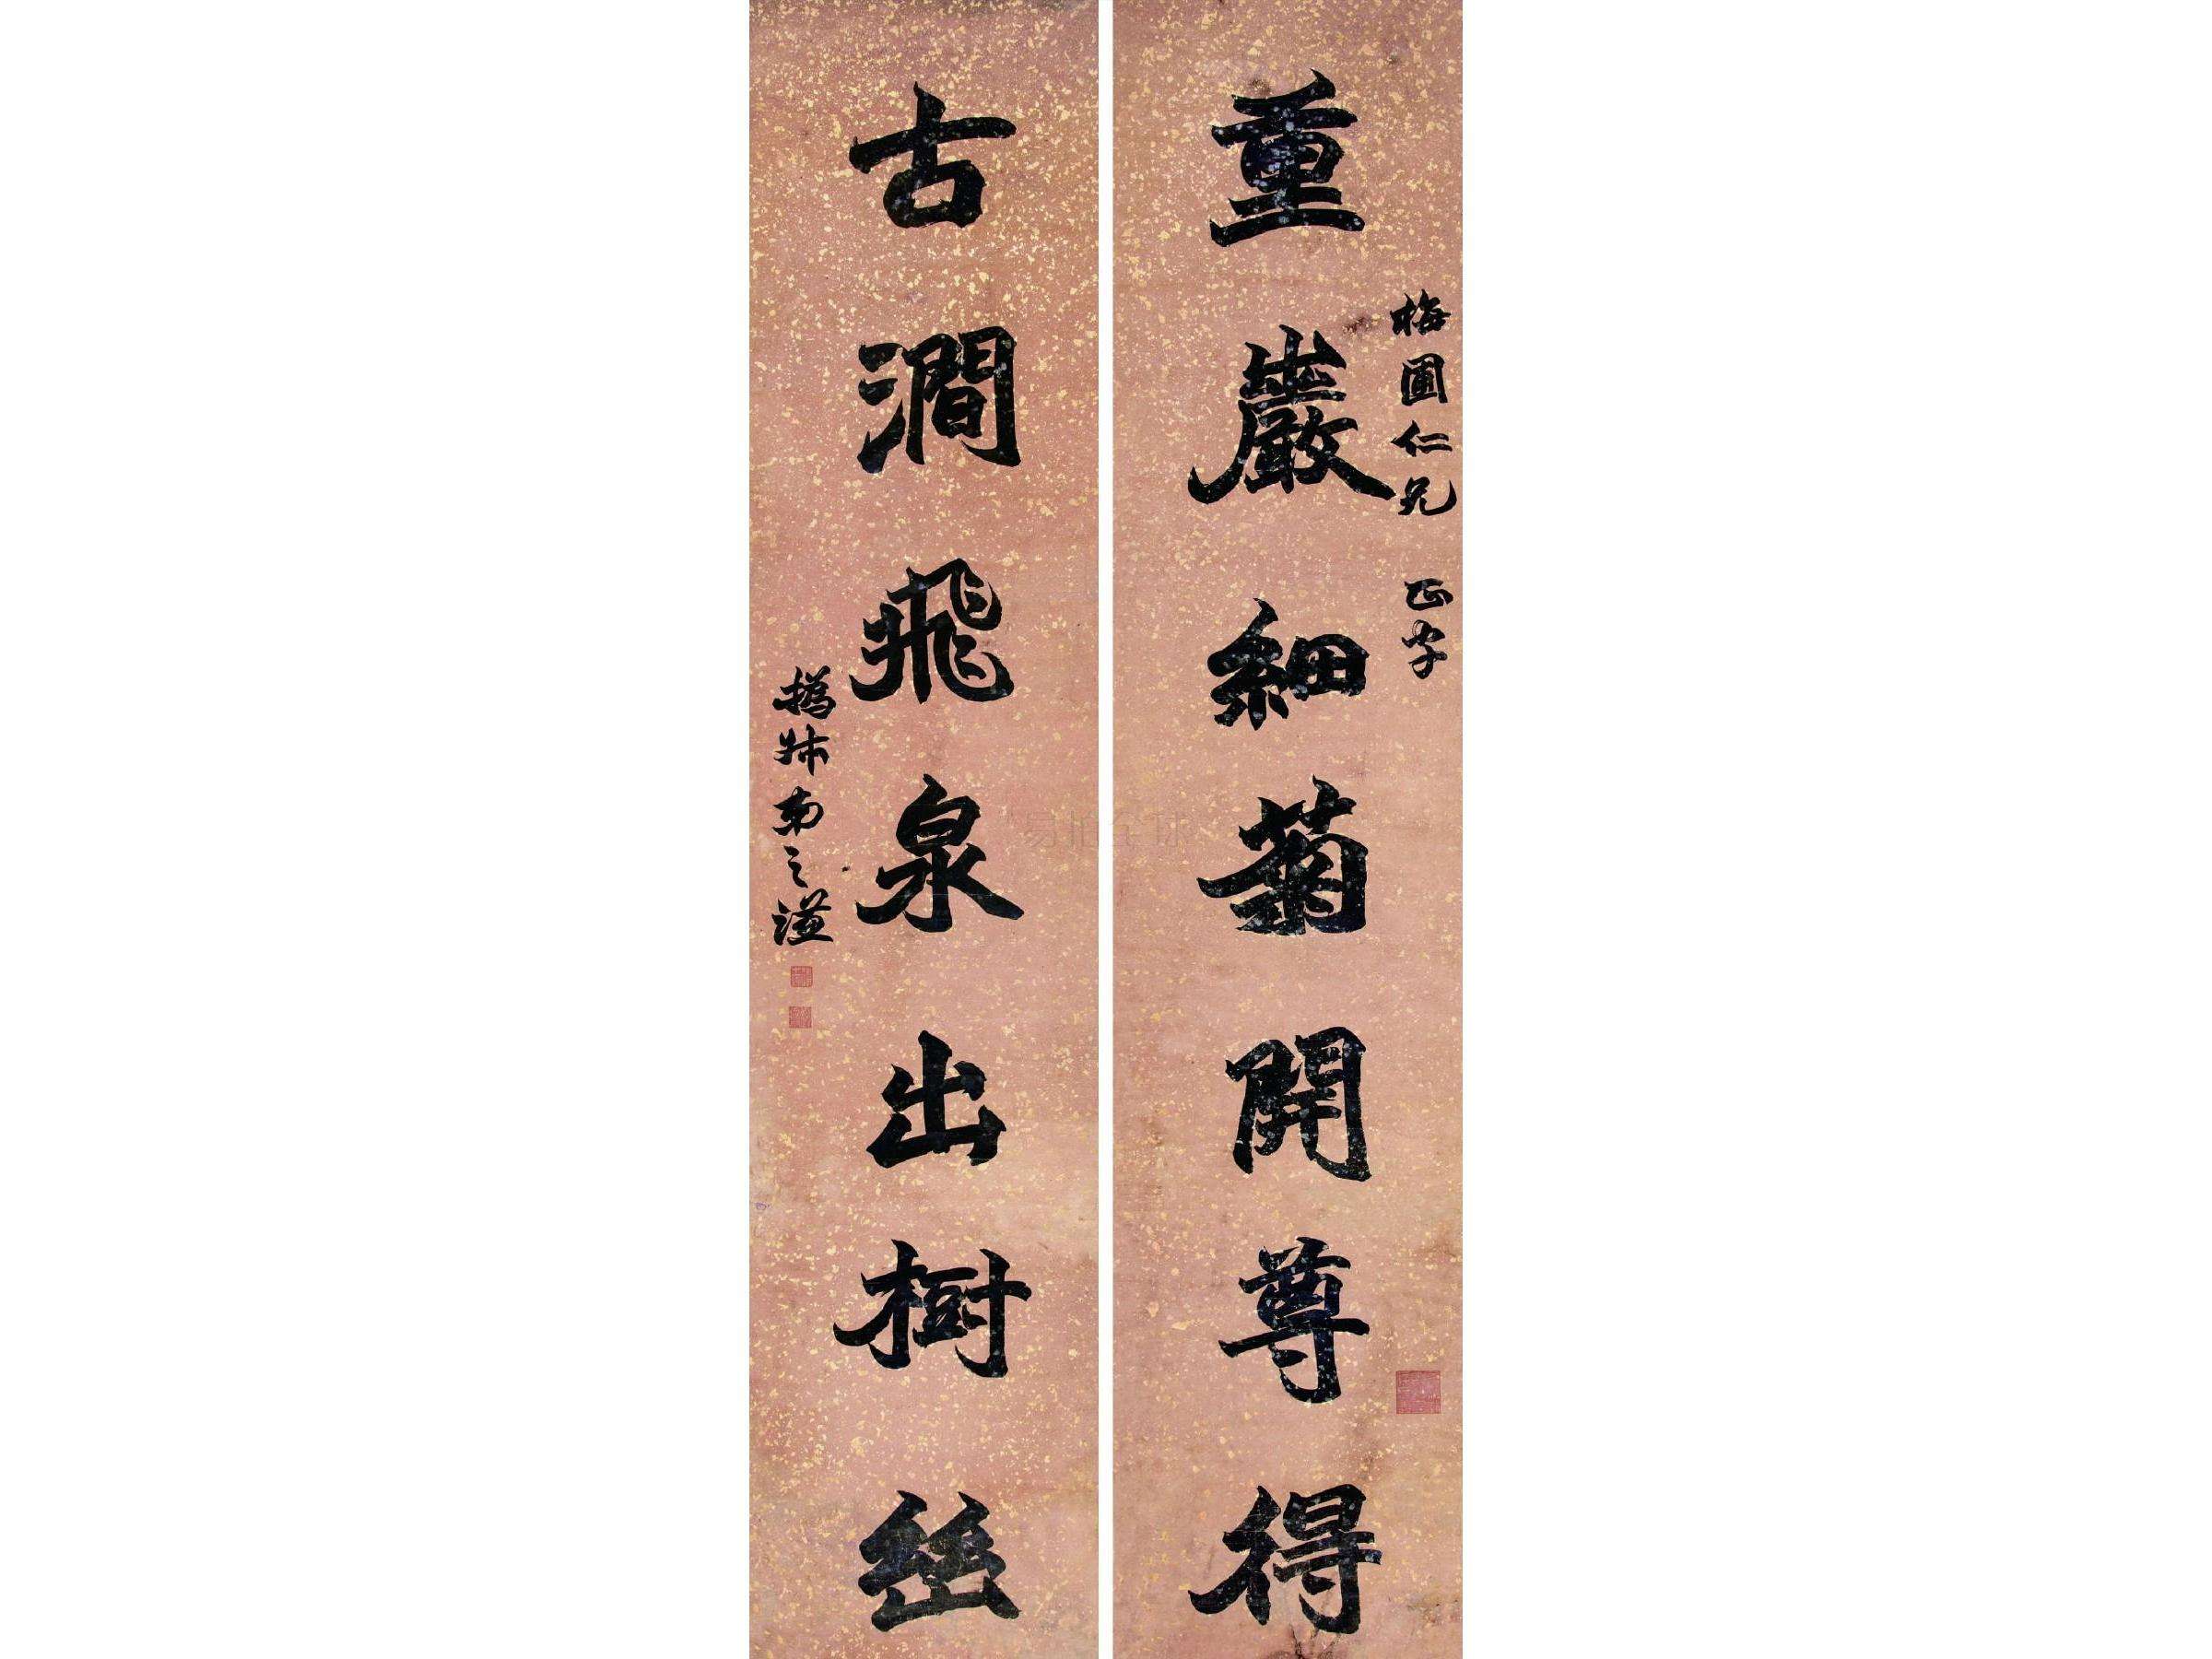 重巖細菊開尊得
梅圃仁兄 正字
古澗飛泉出樹幽
撝叔弟之謙
易拍全球